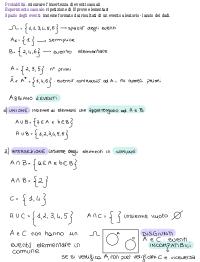 Probabilità: misurare l'incertezza di eventi casuali
Esperimento casuale: ripetizione di N prove elementari
Spazio degli eventi: insieme formato dai risultati di un evento aleatorio: lancio dei dadi.
Ω = {1,2,3,4,5,6} → spazio degli eventi
A = {1} → semplice
B = {2,4,6} → evento elementare
A = {2,3,5} n° primi
Ā = Aᶜ = {1,4,6} : eventi contrari ad A = no numeri primi.
ABBIAMO 2 EVENTI
1) UNIONE insieme di elementi che appartengono ad A e B
A∪B = {2,3,4,5,6}
2) INTERSEZIONE insieme degli elementi in comune
A∩B = {a∈A e b∈B}
A∩B = {2}
C = {1,4}
A∪C = {1,2,3,4,5} A∩C = { } insieme vuoto ∅
A e C non hanno un
evento elementare in
comune
DISGIUNTI
A e C eventi
INCOMPATIBILI
se si verifica A, non può verificarsi C e viceversa